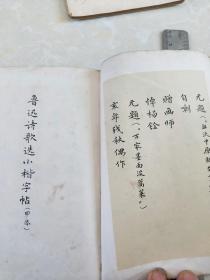 无题（血沃中原
自嘲
赠画师
悼杨铨
无题（万家墨面没蒿莱）
亥年残秋偶作
鲁迅诗歌选小楷字帖